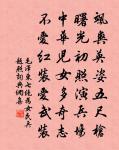 颯爽英姿五尺槍
曙光初照演兵場
中華兒女多奇志
不愛紅裝愛武裝
毛澤東七絕為女民兵
題照詞典網集